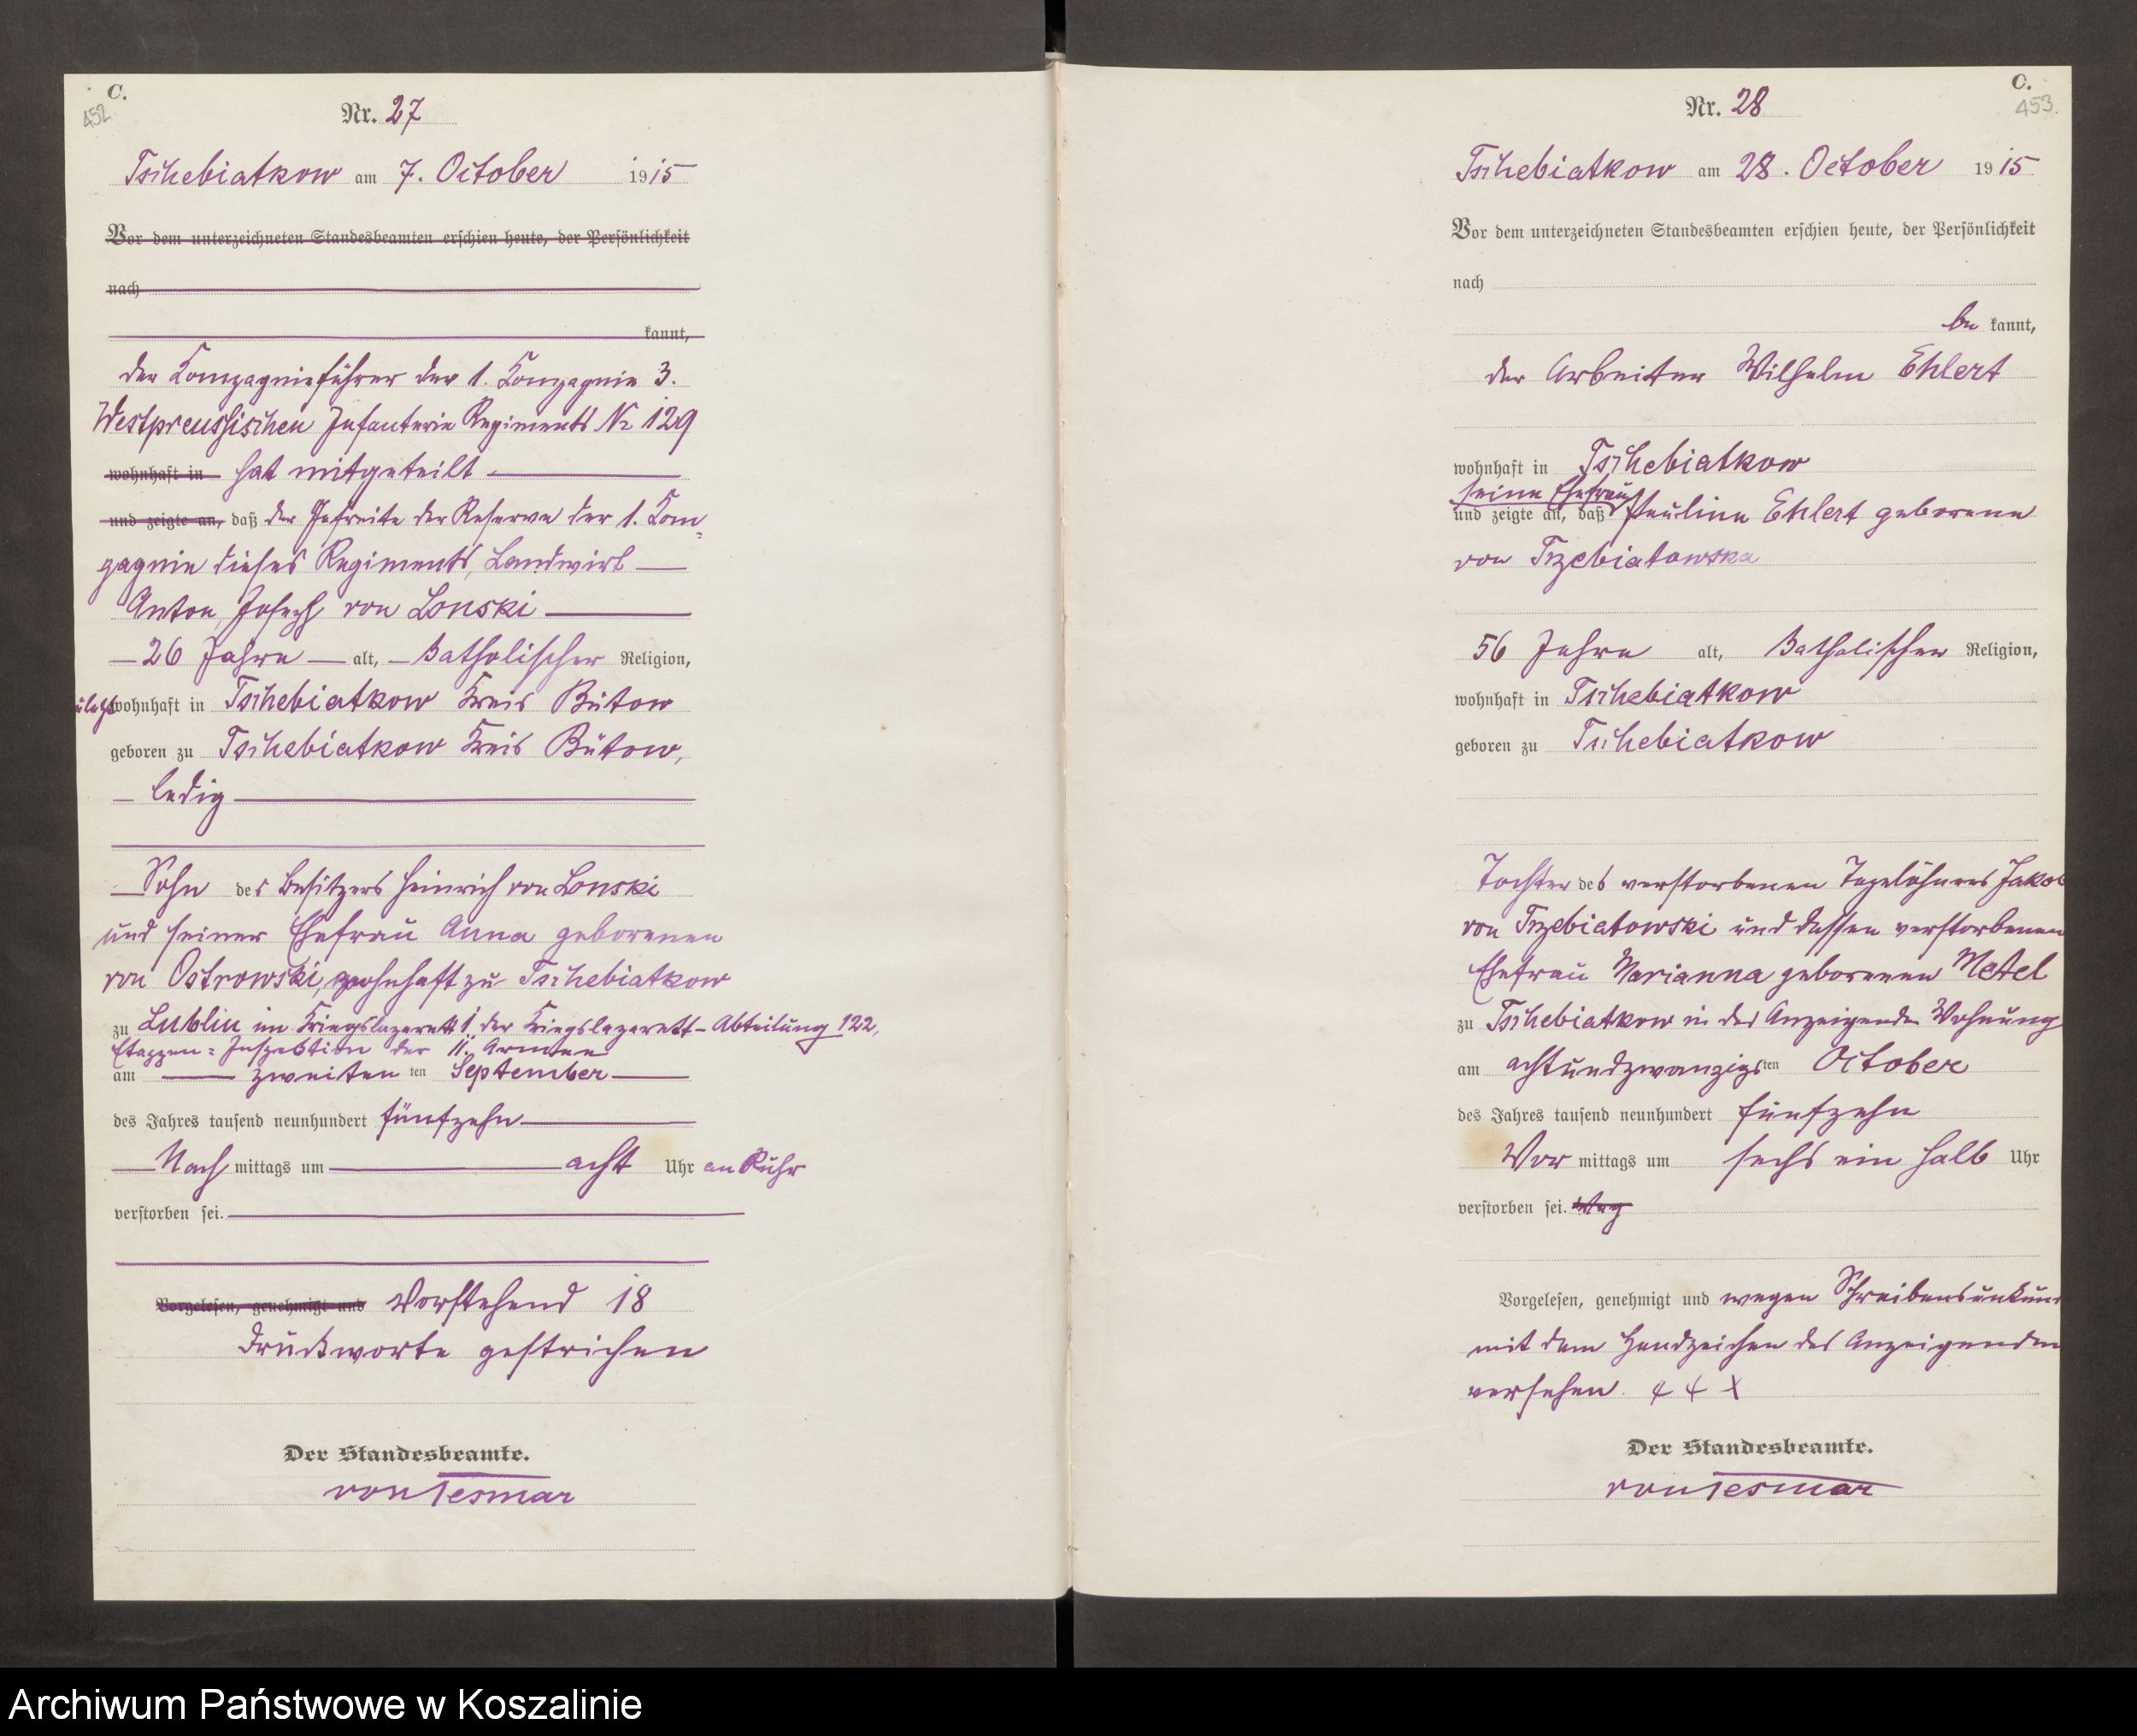 C.
452
Nr. 27
Tschebiatkow am 7. October 1915
Vor dem unterzeichneten Standesbeamten erschien heute, der Persönlichkeit
nach
kannt,
der Kompagnieführer der 1. Kompagnie 3.
Westpreussischen Infanterie Regiments No 129
wohnhaft in hat mitgeteilt
und zeigte an, daß der Gefreite der Reserve der 1. Kom=
pagnie dieses Regiments, Landwirt
Anton, Joseph von Lonski
26 Jahre alt, katholischer Religion,
zuletzt wohnhaft in Tschebiatkow Kreis Bütow
geboren zu Tschebiatkow Kreis Bütow,
ledig
Sohn des Besitzers Heinrich von Lonski
und seiner Ehefrau Anna geborenen
von Ostrowski, wohnhaft zu Tschebiatkow
zu Lublin im Kriegslazarett 1. der Kriegslazarett-Abteilung 122,
Etappen-Inspektion der 11. Armee
am zweiten ten September
des Jahres tausend neunhundert fünfzehn
Nach mittags um acht Uhr an Ruhr
verstorben sei.
Vorgelesen, genehmigt und Vorstehend 18
Druckworte gestrichen
Der Standesbeamte.
von Tesmar
C.
453
Nr. 28
Tschebiatkow am 28. October 1915
Vor dem unterzeichneten Standesbeamten erschien heute, der Persönlichkeit
nach
be kannt,
der Arbeiter Wilhelm Ehlert
wohnhaft in Tschebiatkow
seine Ehefrau
und zeigte an, daß Pauline Ehlert geborene
von Trzebiatowska
56 Jahre alt, katholischer Religion,
wohnhaft in Tschebiatkow
geboren zu Tschebiatkow
Tochter des verstorbenen Tagelöhners Jakob
von Trzebiatowski und dessen verstorbenen
Ehefrau Marianna geborenen Metel
zu Tschebiatkow in des Anzeigenden Wohnung
am achtundzwanzigsten October
des Jahres tausend neunhundert fünfzehn
Vor mittags um sechs ein halb Uhr
verstorben sei.
Vorgelesen, genehmigt und wegen Schreibensunkund
mit dem Handzeichen des Anzeigenden
versehen. + + X
Der Standesbeamte.
von Tesmar
Archiwum Państwowe w Koszalinie